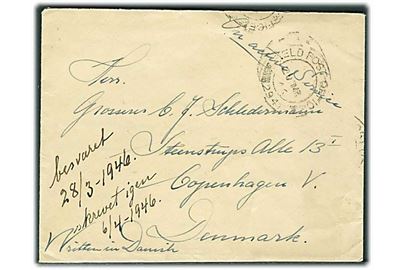 On active Service
FIELD POST OFFICE
294
Herr.
Grosserer C. J. Schledermann
Steenstrups Alle 13 I
Copenhagen V.
Denmark.
besvaret
28/3-1946.
skrevet igen
6/4-1946.
Written in Danish